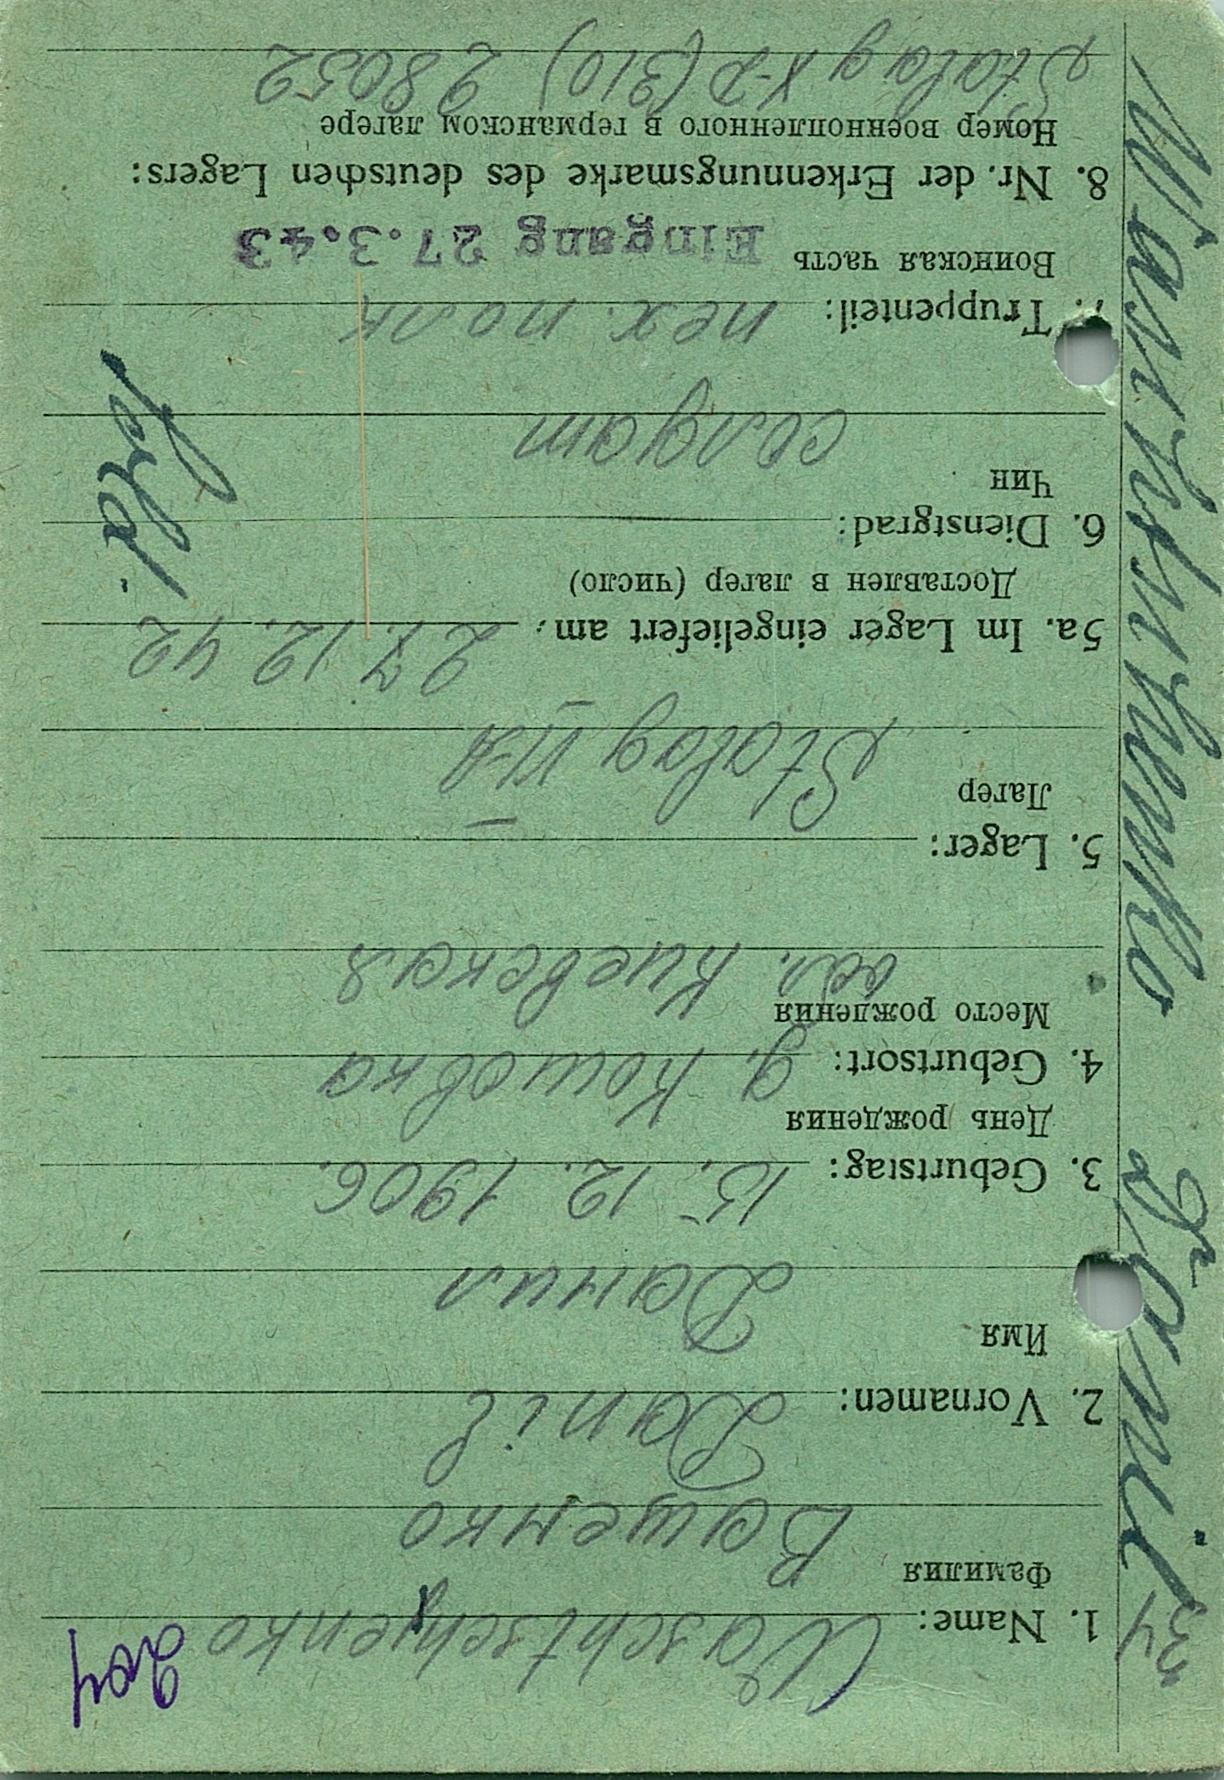 204
1. Name: Waschtschenko
Фамилия Ващенко
2. Vornamen: Danil
Имя Данил
3. Geburtstag: 15.12.1906.
День рождения
4. Geburtsort: д. Кошовка
Место рождения обл. Киевская
5. Lager:
Лагер Stalag VI-A
5a. Im Lager eingeliefert am: 27.12.42
Доставлен в лагер (число)
6. Dienstgrad:
Чин солдат
Sold.
7. Truppenteil: пех. полк
Воинская часть Eingang 27.3.43
8. Nr. der Erkennungsmarke des deutschen Lagers:
Номер военнопленного в германском лагере
Stalag X-D (310) 28052
34
Danil